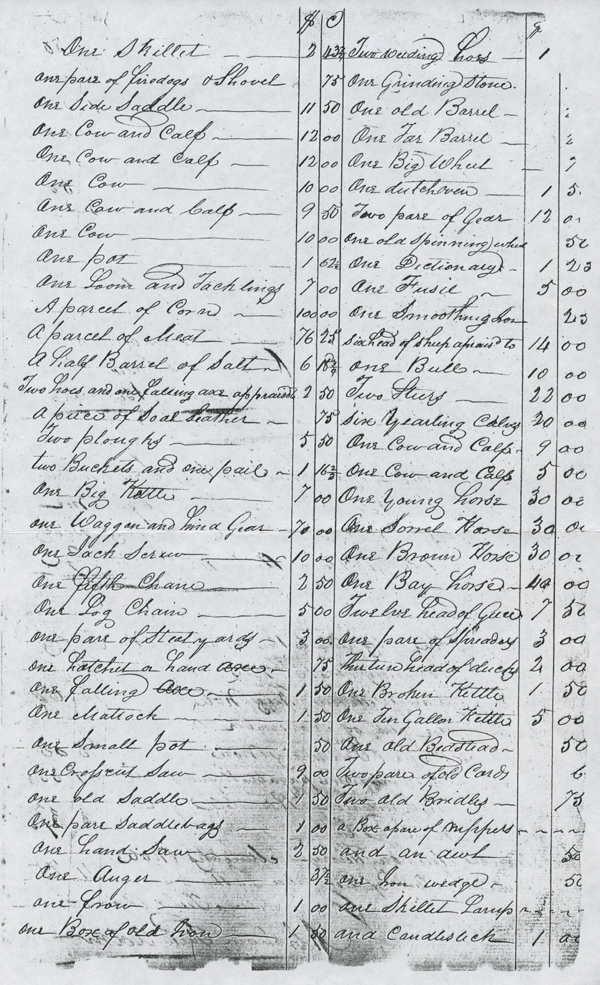 $ C
One Skillet — 2 43¾
one pare of firedogs & Shovel 75
One Side Saddle — 11 50
One Cow and Calf — 12 00
One Cow and calf — 12 00
One Cow — 10 00
One Cow and Calf — 9 50
One Cow — 10 00
One pot — 1 62½
One Loom and Tacklings 7 00
A parcel of Corn — 100 00
A parcel of Meat — 76 25
A half Barrel of Salt — 6 18¾
Two hoes and one falling axe appraisd 2 50
A piece of Soal Leather — 75
Two ploughs — 5 50
two Buckets and one pail — 1 16⅔
One Big Kettle — 7 00
one Waggon and hind Gear — 70 00
one Jack Screw — 10 00
One fifth Chane 2 50
One Log Chain — 5 00
one pare of Steelyards 3 00
one hatchet or hand axe — 75
One falling axe — 1 50
One Mattock — 1 50
One Small pot — 50
one Crosscut Saw — 9 00
one old Saddle — 1 50
One pare Saddlebags 1 00
One hand Saw — 2 50
One Auger — 37½
one Frow — 1 00
one Box of old Iron — 1 50
$
Two weeding hoes — 1
One Grinding Stone
One old Barrel —
One Tar Barrel —
One Big Wheel — 7
One dutch oven — 1 5
Two pare of Gear 12 00
one old Spinning wheel 50
One Dictionary — 1 25
One Fusie — 5 00
One Smoothing Iron 25
six head of sheep apraisd to 14 00
One Bull — 10 00
Two Sturs — 22 00
Six Yearling Calvs 20 00
One Cow and Calf — 9 00
One Cow and Calf 5 00
One Young horse 30 00
One Sorrel Horse 30 00
One Brown Horse 30 00
One Bay horse — 40 00
Twelve head of Geece 7 50
One pare of Spreaders 3 00
thirteen head of ducks 2 00
One Broken Kettle 1 50
One Ten Gallon Kettle 5 00
One old Bedstead — 50
Two pare of old Cards 6
Two old Bridles — 75
a Box a pare of nippers —
and an awl 50
one Iron wedge — 50
one Skillet Lamp —
and Candlestick 1 00